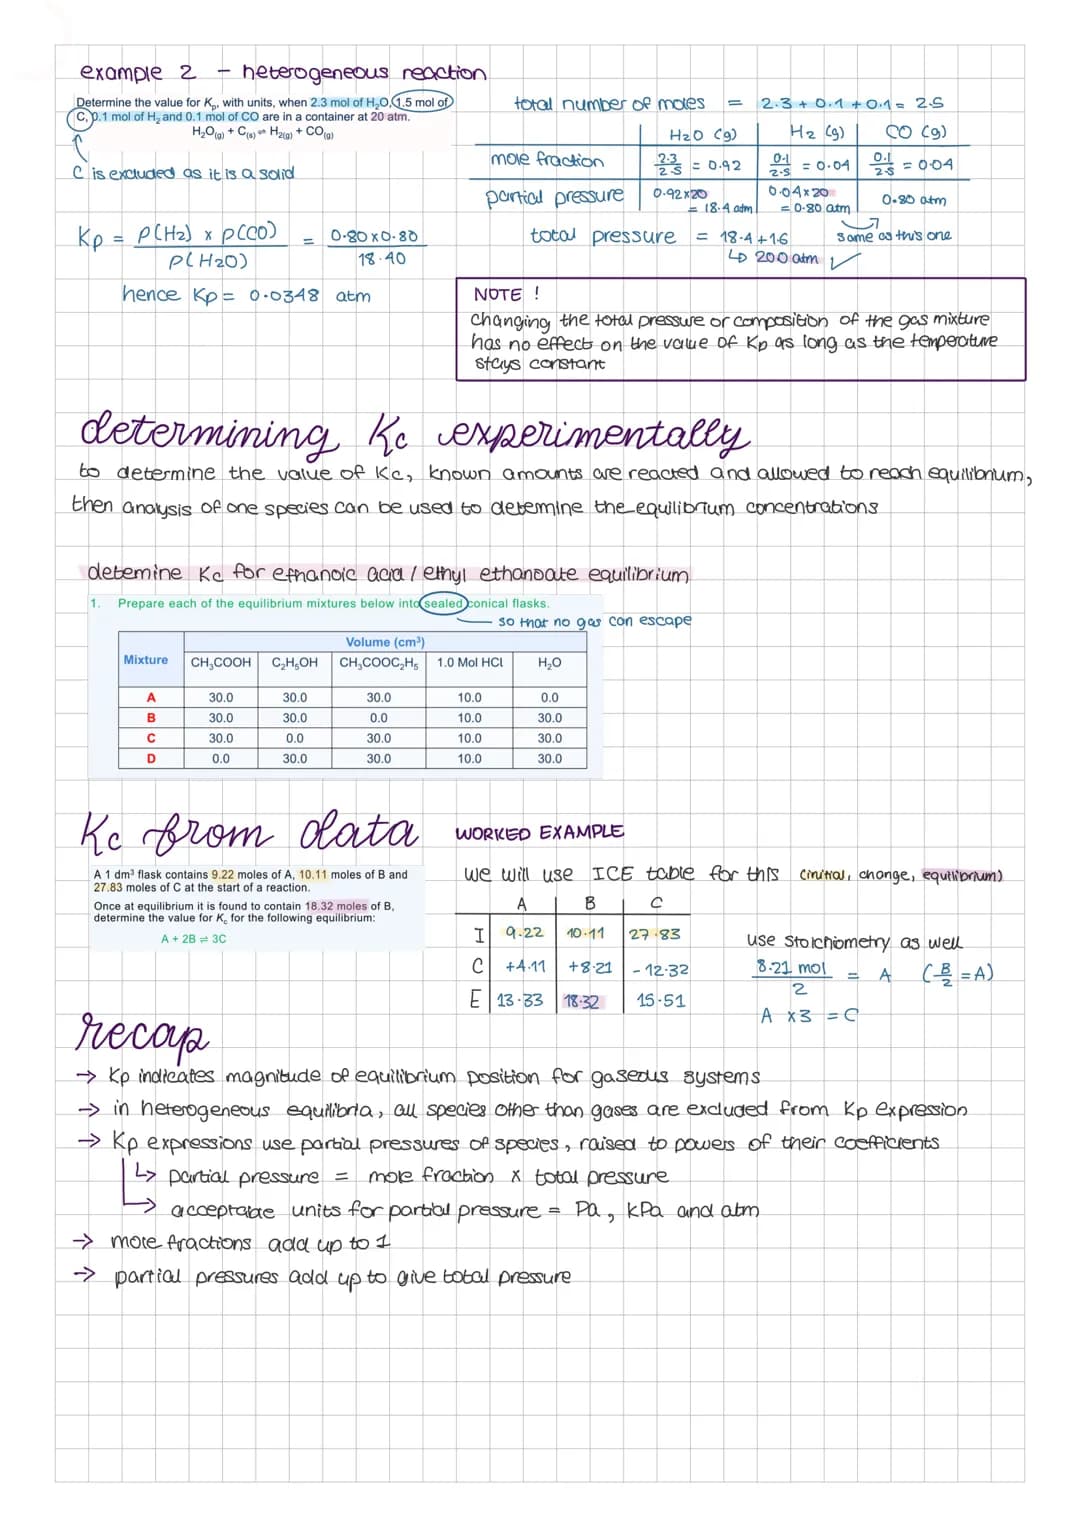 example 2 - heterogeneous reaction
Determine the value for Kp, with units, when 2.3 mol of H2O, 1.5 mol of
C, 0.1 mol of H2 and 0.1 mol of CO are in a container at 20 atm.
H2O(g) + C(s) ⇌ H2(g) + CO(g)
C is excluded as it is a solid
total number of moles = 2.3 + 0.1 + 0.1 = 2.5
H2O (g) H2 (g) CO (g)
mole fraction 2.3/2.5 = 0.92 0.1/2.5 = 0.04 0.1/2.5 = 0.04
partial pressure 0.92x20 = 18.4 atm 0.04x20 = 0.80 atm 0.80 atm
same as this one
total pressure = 18.4 + 1.6
↳ 20.0 atm ✓
Kp = P(H2) x P(CO) / P(H2O) = 0.80 x 0.80 / 18.40
hence Kp = 0.0348 atm
NOTE !
changing the total pressure or composition of the gas mixture
has no effect on the value of Kp as long as the temperature
stays constant
determining Kc experimentally
to determine the value of Kc, known amounts are reacted and allowed to reach equilibrium,
then analysis of one species can be used to determine the equilibrium concentrations
detemine Kc for ethanoic acid / ethyl ethanoate equilibrium
1. Prepare each of the equilibrium mixtures below into sealed conical flasks.
so that no gas can escape
Mixture Volume (cm³)
CH3COOH C2H5OH CH3COOC2H5 1.0 Mol HCl H2O
A 30.0 30.0 30.0 10.0 0.0
B 30.0 30.0 0.0 10.0 30.0
C 30.0 0.0 30.0 10.0 30.0
D 0.0 30.0 30.0 10.0 30.0
Kc from data
WORKED EXAMPLE
A 1 dm³ flask contains 9.22 moles of A, 10.11 moles of B and
27.83 moles of C at the start of a reaction.
Once at equilibrium it is found to contain 18.32 moles of B,
determine the value for Kc for the following equilibrium:
A + 2B ⇌ 3C
we will use ICE table for this (initial, change, equilibrium)
A B C
I 9.22 10.11 27.83
C +4.11 +8.21 -12.32
E 13.33 18.32 15.51
use stoichiometry as well
8.21 mol / 2 = A (B/2 = A)
A x3 = C
recap
→ Kp indicates magnitude of equilibrium position for gaseous systems
→ in heterogeneous equilibria, all species other than gases are excluded from Kp expression
→ Kp expressions use partial pressures of species, raised to powers of their coefficients
↳ partial pressure = mole fraction x total pressure
↳ acceptable units for partial pressure = Pa, kPa and atm
→ mole fractions add up to 1
→ partial pressures add up to give total pressure